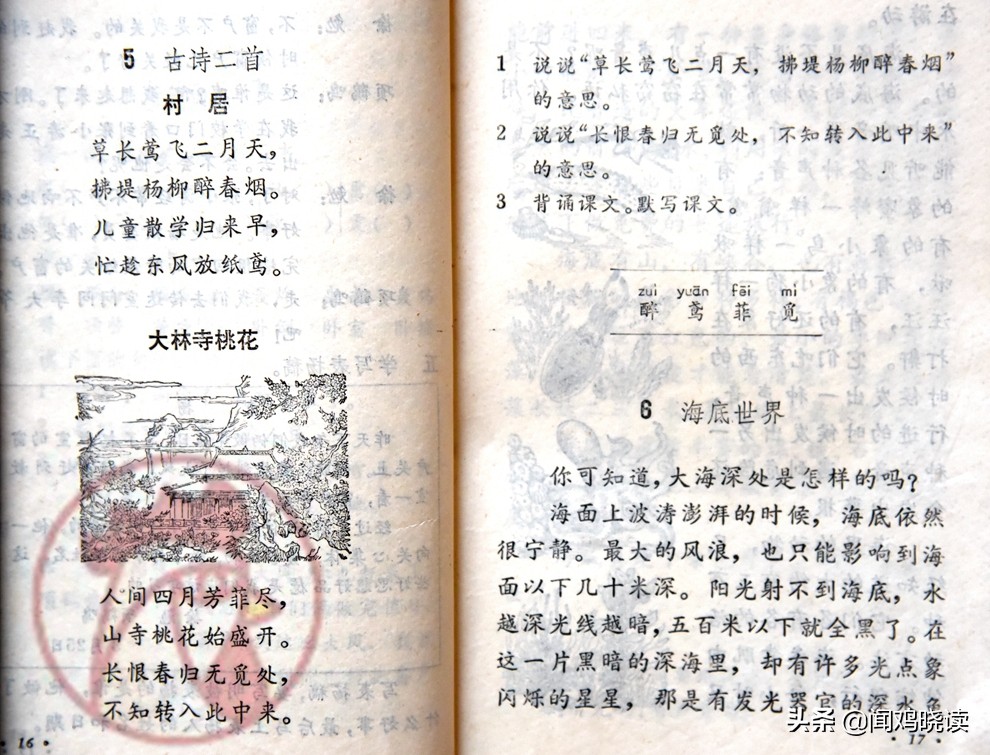 5 古诗二首
村 居
草长莺飞二月天，
拂堤杨柳醉春烟。
儿童散学归来早，
忙趁东风放纸鸢。
大林寺桃花
人间四月芳菲尽，
山寺桃花始盛开。
长恨春归无觅处，
不知转入此中来。
·16·
1 说说“草长莺飞二月天，拂堤杨柳醉春烟”
的意思。
2 说说“长恨春归无觅处，不知转入此中来”
的意思。
3 背诵课文。默写课文。
zuì yuān fēi mì
醉 鸢 菲 觅
6 海底世界
你可知道，大海深处是怎样的吗？
海面上波涛澎湃的时候，海底依然
很宁静。最大的风浪，也只能影响到海
面以下几十米深。阳光射不到海底，水
越深光线越暗，五百米以下就全黑了。在
这一片黑暗的深海里，却有许多光点象
闪烁的星星，那是有发光器官的深水鱼
·17·
头条 @闻鸡晓读